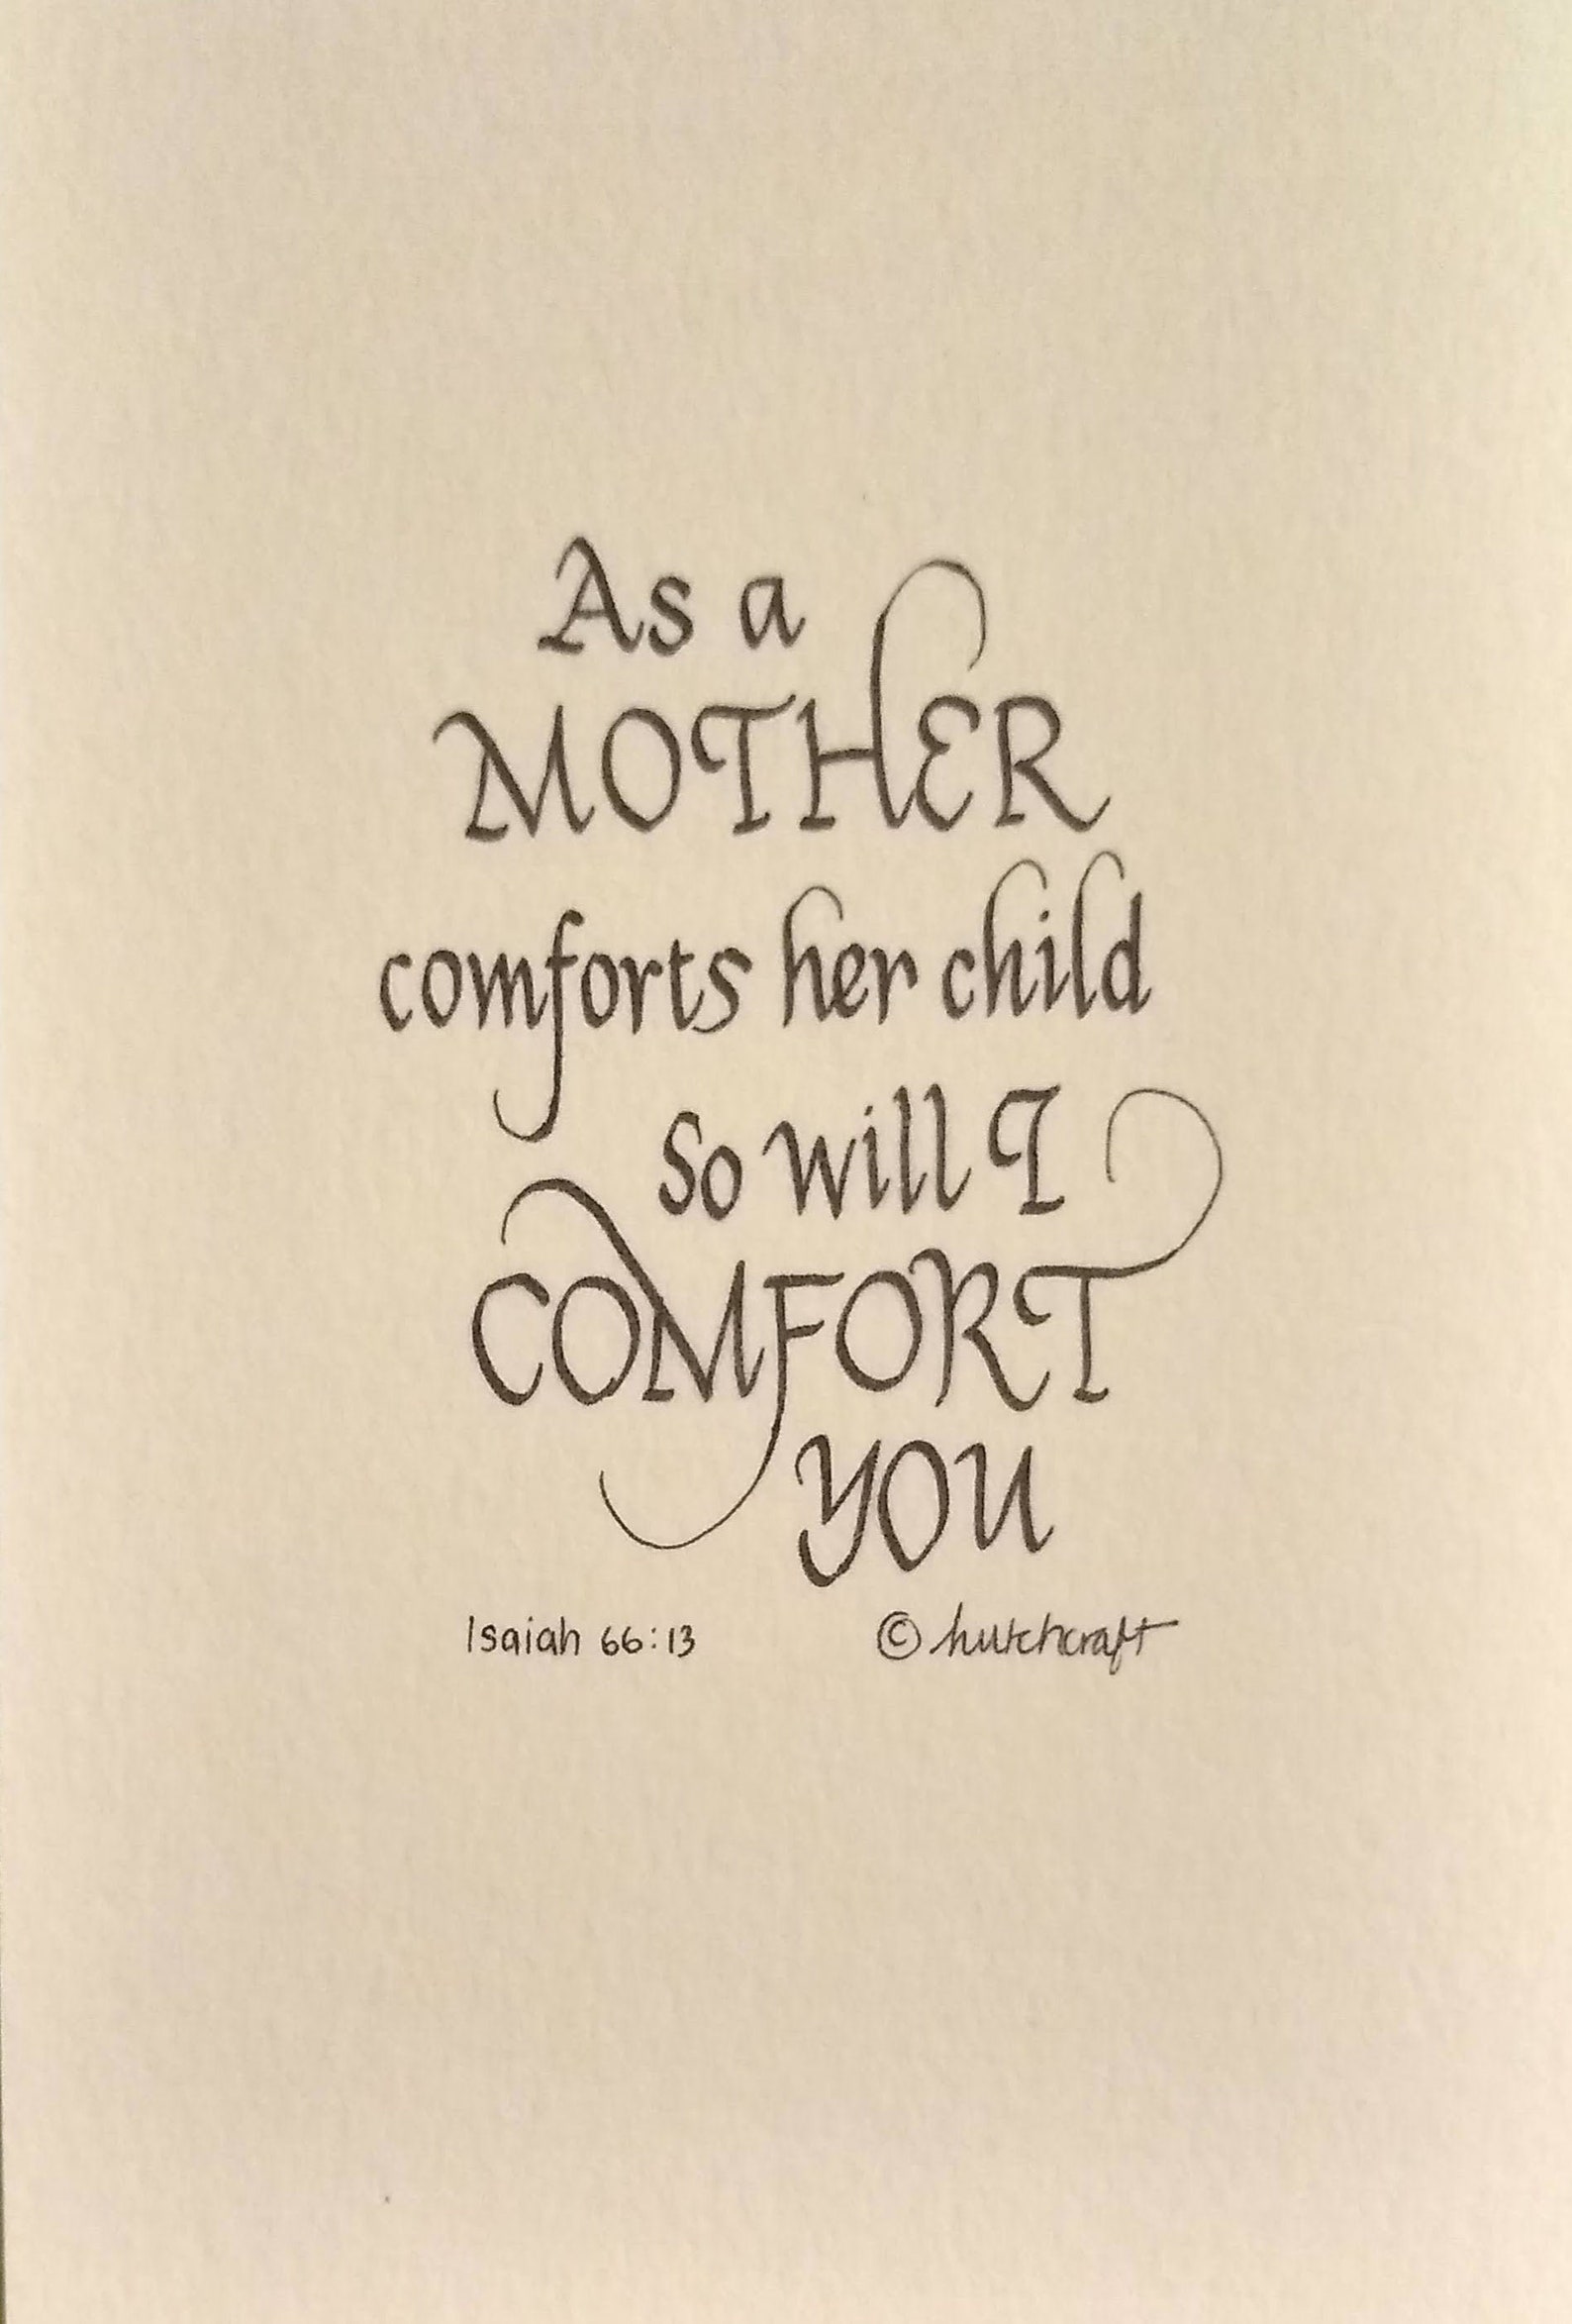 As a
MOTHER
comforts her child
so will I
COMFORT
YOU
Isaiah 66:13 © hutchcraft